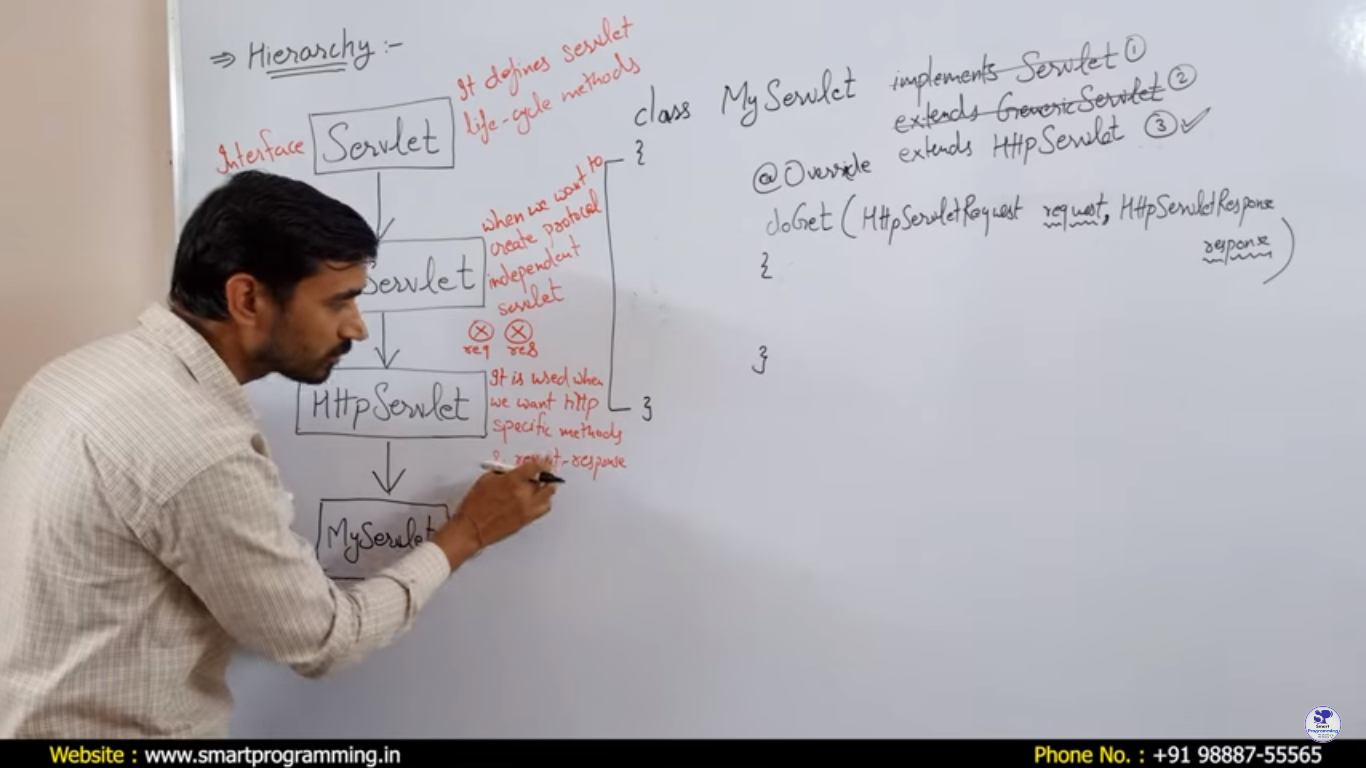 ⇒ Hierarchy :-
It defines servlet
life-cycle methods
Interface
Servlet
when we want to
create protocol
independent
servlet
Servlet
req res
HttpServlet
It is used when
we want http
specific methods
& -response
MyServlet
class MyServlet implements Servlet ①
extends GenericServlet ②
extends HttpServlet ③ ✓
{
@Override
doGet (HttpServletRequest request, HttpServletResponse
response)
{
}
}
SP
Smart
Programming
Website : www.smartprogramming.in
Phone No. : +91 98887-55565